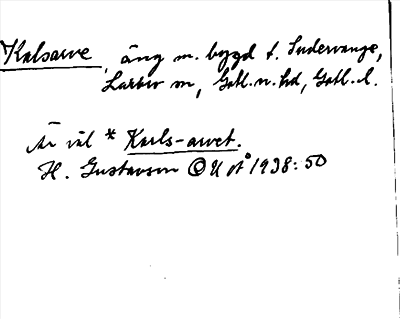 Kalsarve, äng m. bygd t. Sudervange,
Lärbro sn, Gotl. n. hd, Gotl. l.
Är väl * Karls-arvet.
H. Gustavson OUÅ 1938: 50